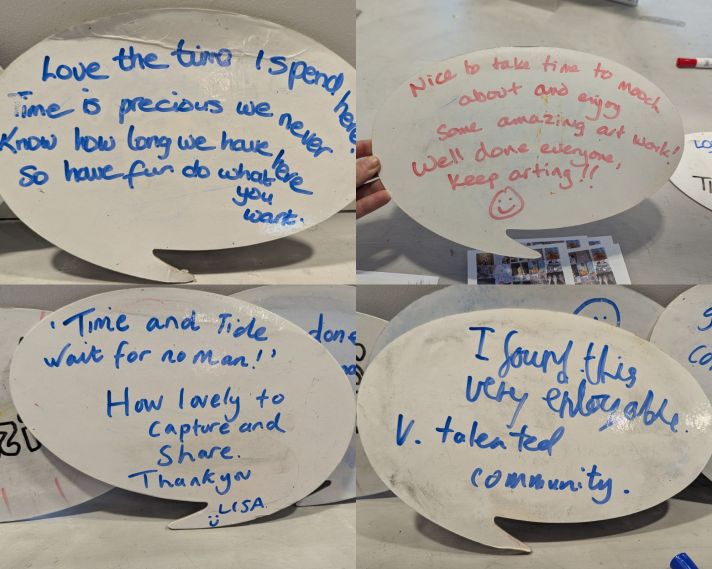 Love the time I spend here!
Time is precious we never
Know how long we have here
So have fun do what
you
want.
Nice to take time to mooch
about and enjoy
some amazing art work!
Well done everyone,
Keep arting!!
LO
TI
'Time and Tide
wait for no man!'
How lovely to
capture and
share.
Thankyou
LISA
done
I found this
very enjoyable.
V. talented
community.
co